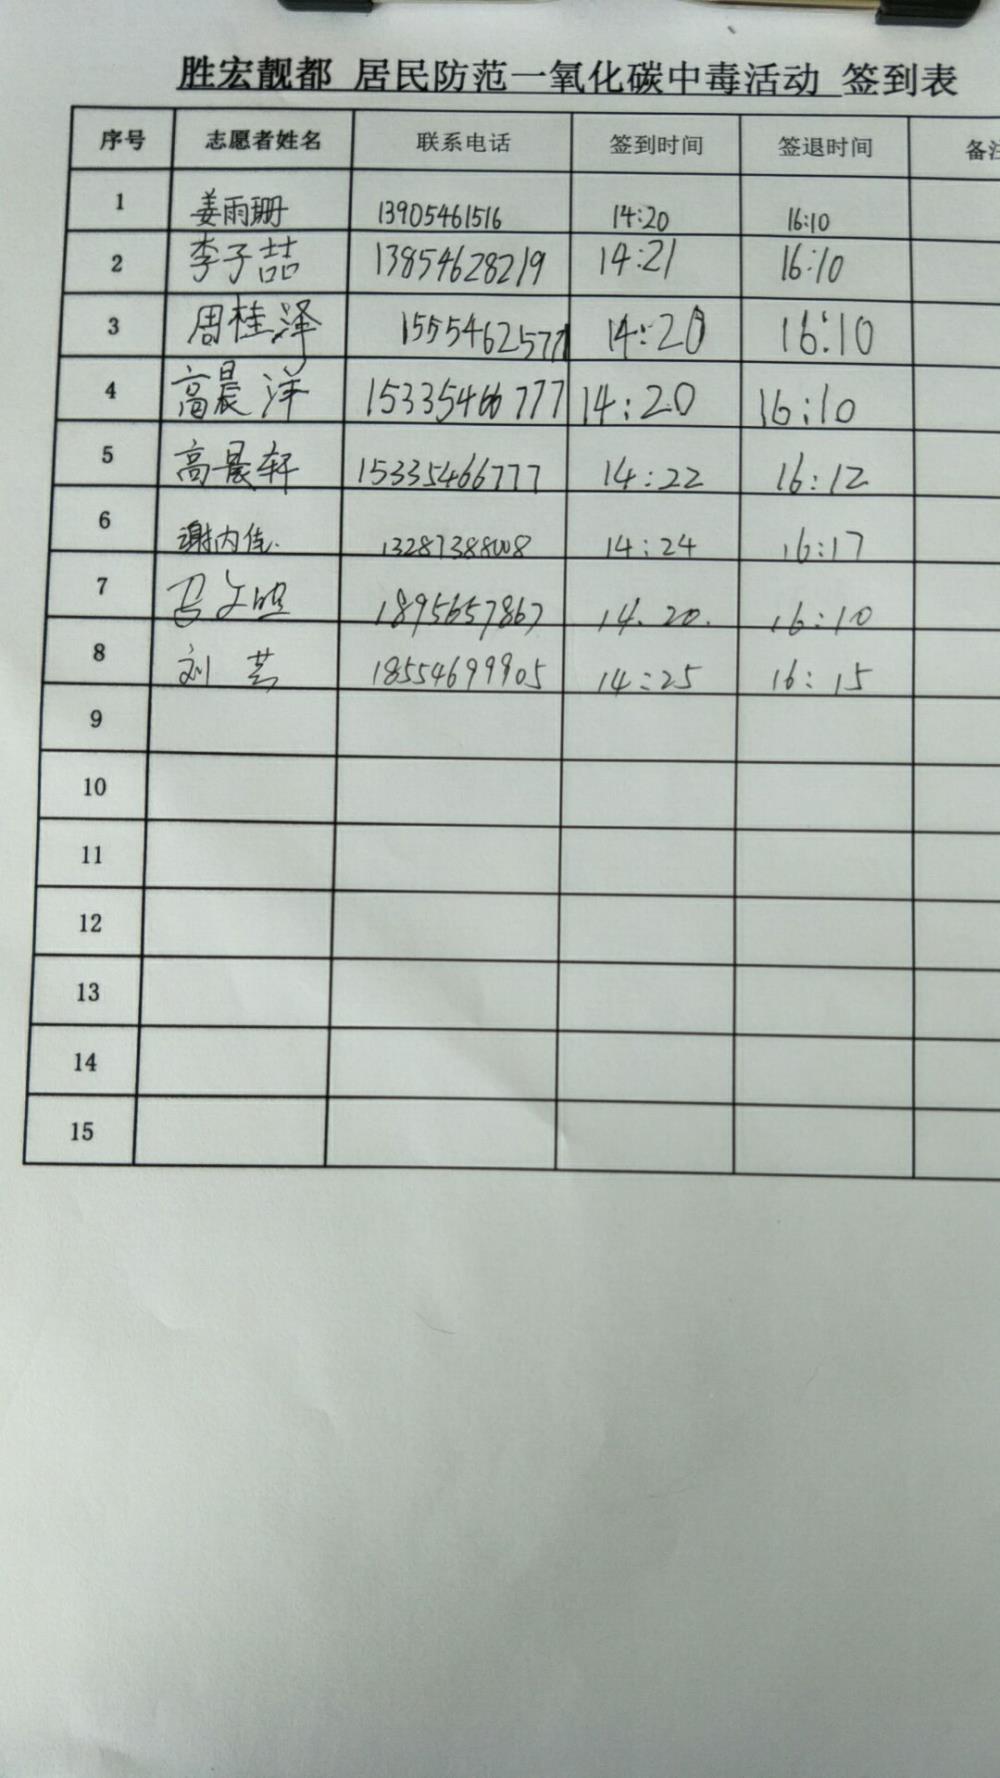 胜宏靓都 居民防范一氧化碳中毒活动 签到表
序号 志愿者姓名 联系电话 签到时间 签退时间 备注
1 姜雨珊 13905461516 14:20 16:10
2 李子喆 13854628219 14:21 16:10
3 周桂泽 14:20 16:10
4 高晨洋 15335466777 14:20 16:10
5 高晨轩 15335466777 14:22 16:12
6 13287388008 14:24 16:17
7 1895657867 14.20. 16:10
8 刘芸 18554699905 14:25 16:15
9
10
11
12
13
14
15